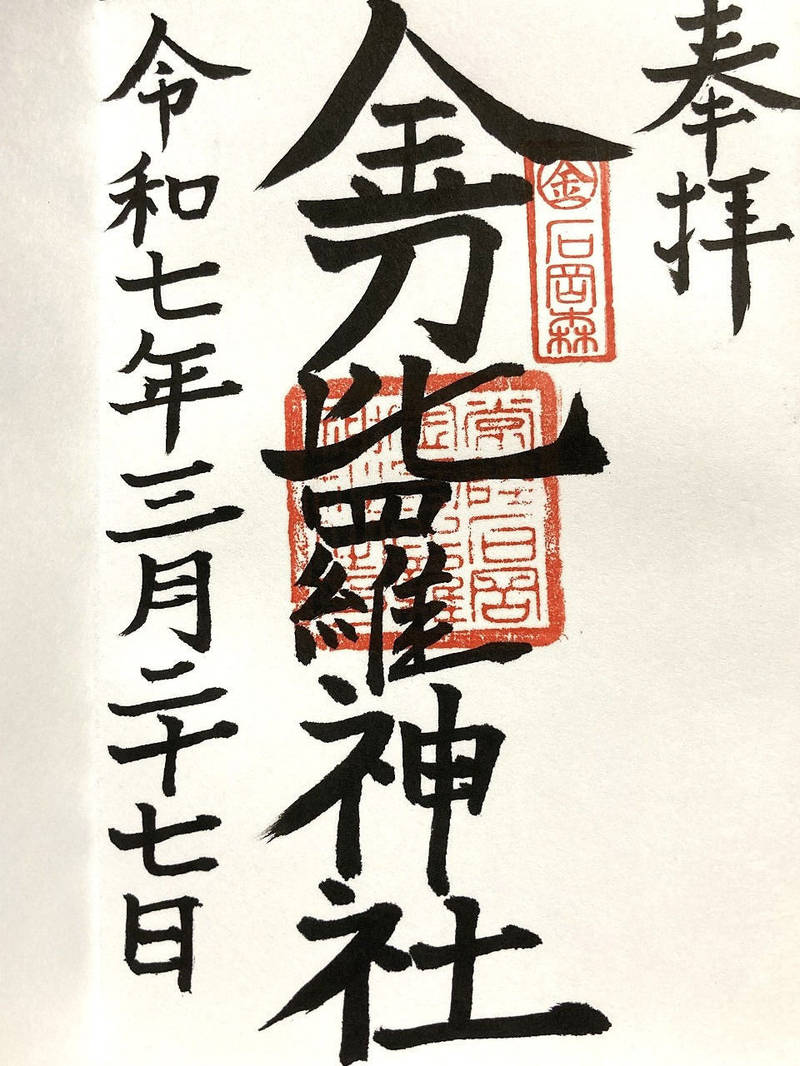 奉拝
金石岡森
金刀比羅神社
常陸石岡
令和七年三月二十七日